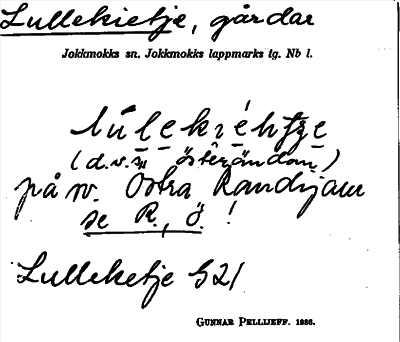 Lullekietje, gårdar
Jokkmokks sn, Jokkmokks lappmarks tg. Nb l.
lúlekiéhtje
(d.v.s. österändan)
på n. Östra Randijaur
se R., Ö. !
Lulleketje G21
GUNNAR PELLIJEFF. 1936.